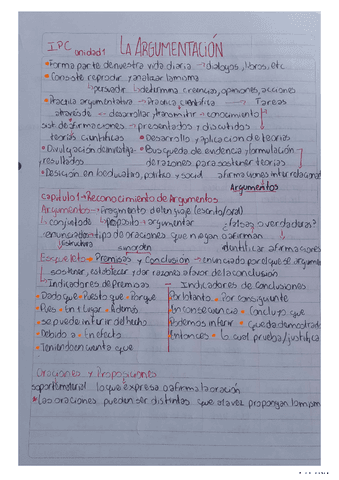 I.PC unidad 1 LA ARGUMENTACIÓN
•Forma parte de nuestra vida diaria → dialogos, libros, etc.
• Consiste reproducir y analizar la misma
↳ persuadir ↳ determina creencias, opiniones, acciones
•Practica argumentativa → Practica cientifica → Tareas
através de ← desarrollar, transmitir ← conocimiento
de afirmaciones → presentados y discutidos
teorias cientificas • Desarrollo y aplicacion de teorias
•Divulgación • Busqueda de evidencia y formulación
resultados de razones para sostener teorias
•Desición en lo educativo, politico y social afirmaciones interrelacionad
Argumentos
Capitulo 1→Reconocimiento de Argumentos
Argumentos→Fragmento de lenguaje (escrito/oral)
↳conjunto de ↳proposito→argumentar ¿falsas o verdaderas?
enunciados→tipo de oraciones que niegan o afirman
↳estructura identificar afirmaciones
Esqueleto Premisas y Conclusión→enunciado por el que se argumenta
sostener, establecer y dar razones a favor de la conclusión
↳Indicadores de Premisas Indicadores de Conclusiones
•Dado que •Puesto que •Porque •Por lo tanto •Por consiguiente
•Pues •En 1° lugar •Además •En consecuencia •Concluyo que
•se puede inferir del hecho •Podemos inferir •Queda demostrado
•Debido a •En efecto •Entonces •Lo cual prueba/justifica
•Teniendo en cuenta que
Oraciones y Proposiciones
soporte material lo que expresa o afirma la oración
•Las oraciones pueden ser distintas que a la vez propongan la mism